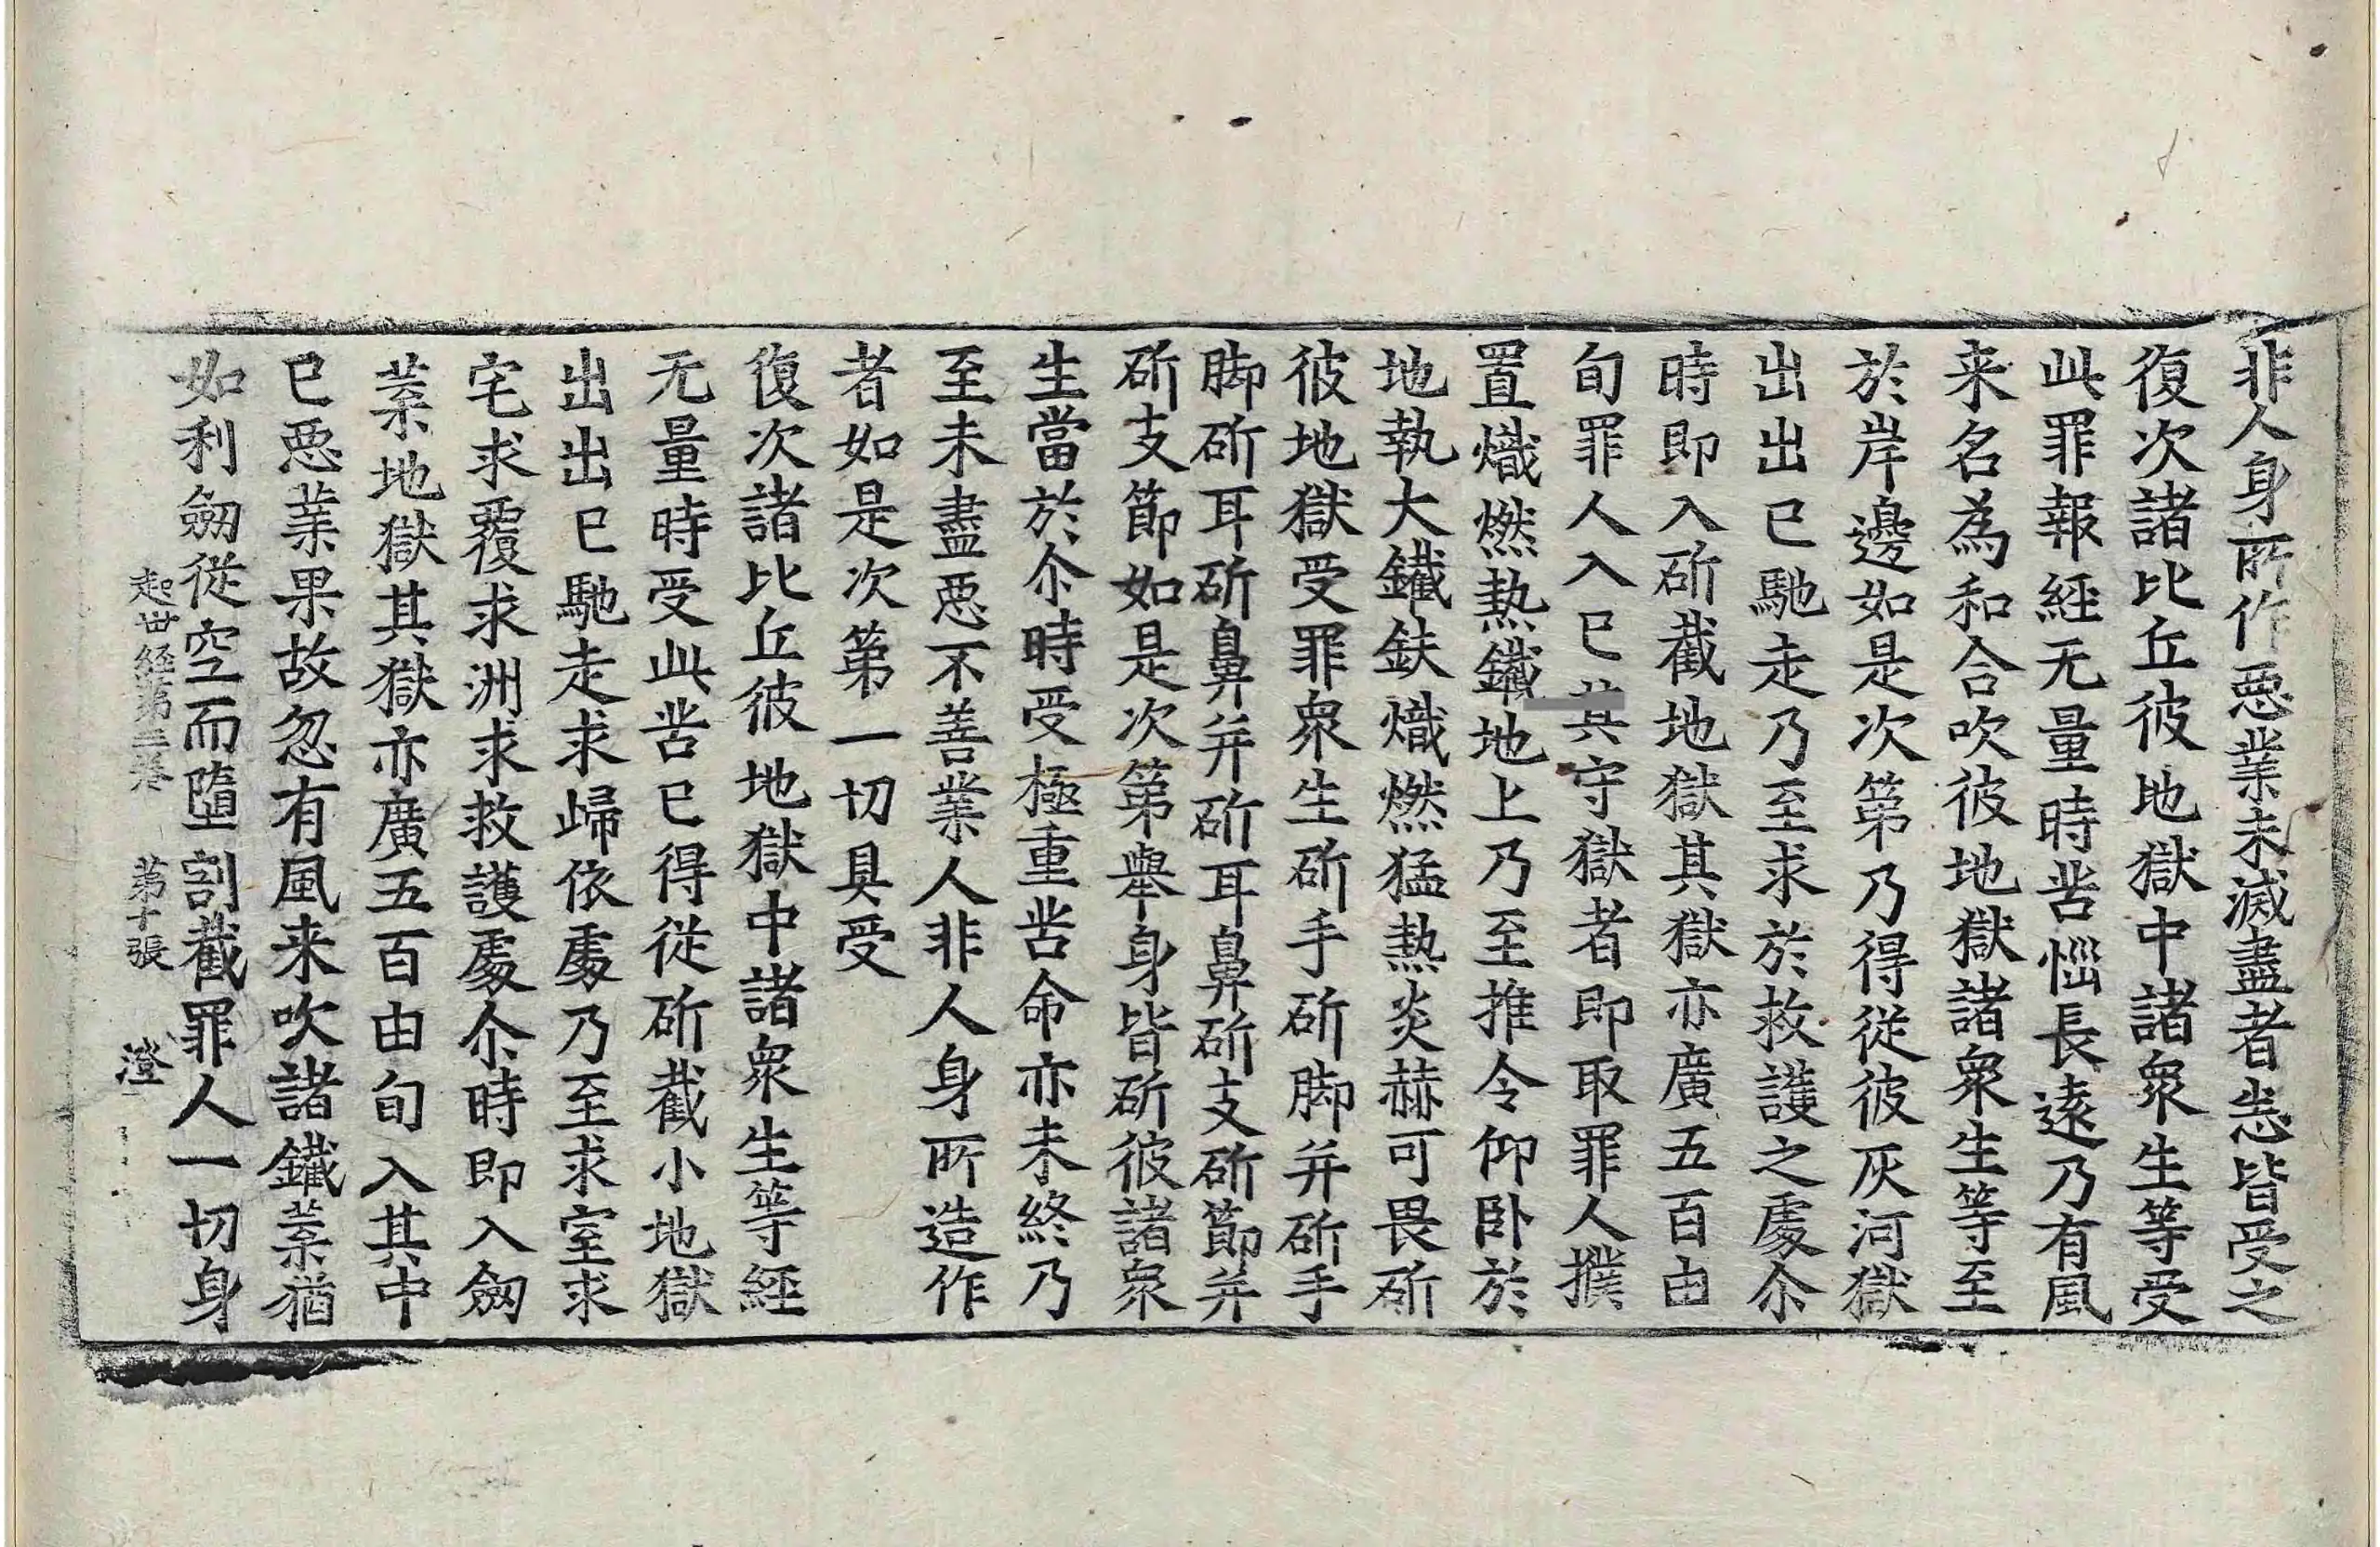 非人身所作惡業未滅盡者悉皆受之
復次諸比丘彼地獄中諸衆生等受
此罪報經无量時苦惱長遠乃有風
来名為和合吹彼地獄諸衆生等至
於岸邊如是次第乃得從彼灰河獄
出出已馳走乃至求於救護之處尒
時即入斫截地獄其獄亦廣五百由
旬罪人入已其守獄者即取罪人撲
置熾燃熱鐵地上乃至推令仰卧於
地執大鐵鈇熾燃猛熱炎赫可畏斫
彼地獄受罪衆生斫手斫脚并斫手
脚斫耳斫鼻并斫耳鼻斫支斫節并
斫支節如是次第舉身皆斫彼諸衆
生當於尒時受極重苦命亦未終乃
至未盡惡不善業人非人身所造作
者如是次第一切具受
復次諸比丘彼地獄中諸衆生等經
无量時受此苦已得從斫截小地獄
出出已馳走求歸依處乃至求室求
宅求覆求洲求救護處尒時即入劒
葉地獄其獄亦廣五百由旬入其中
已惡業果故忽有風来吹諸鐵葉猶
如利劒從空而墮割截罪人一切身
起世經第三卷 第十張 澄